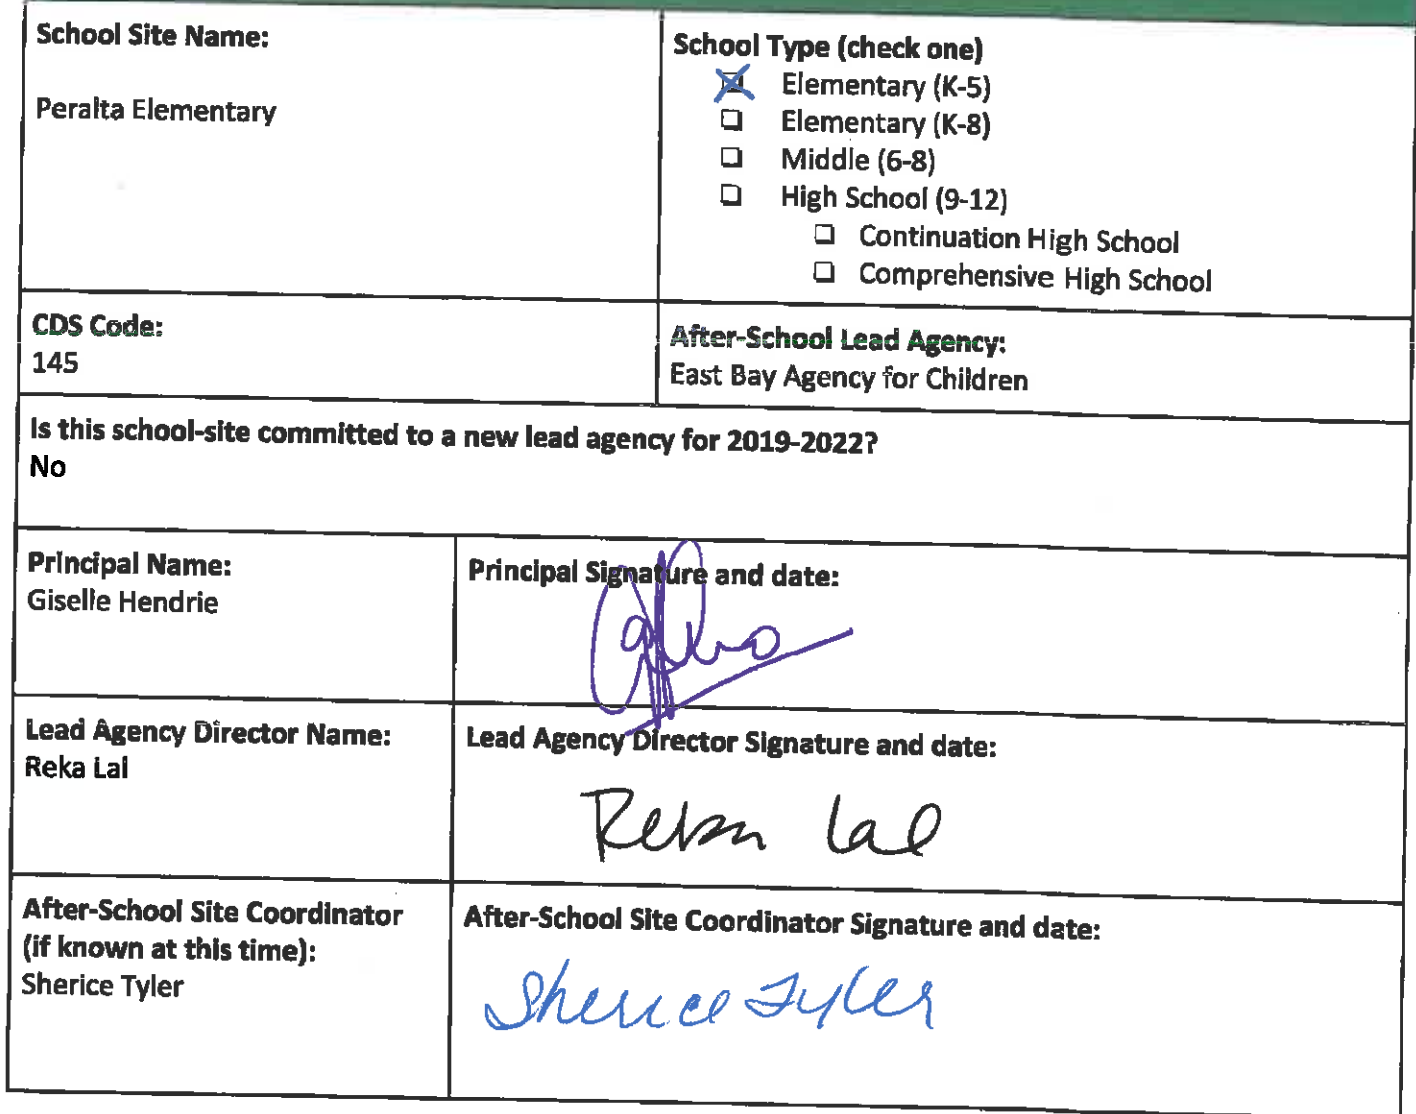 School Site Name:
Peralta Elementary
School Type (check one)
Elementary (K-5)
Elementary (K-8)
Middle (6-8)
High School (9-12)
Continuation High School
Comprehensive High School
CDS Code:
145
After-School Lead Agency:
East Bay Agency for Children
Is this school-site committed to a new lead agency for 2019-2022?
No
Principal Name:
Giselle Hendrie
Principal Signature and date:
Lead Agency Director Name:
Reka Lal
Lead Agency Director Signature and date:
Reka Lal
After-School Site Coordinator
(if known at this time):
Sherice Tyler
After-School Site Coordinator Signature and date:
Sherice Tyler